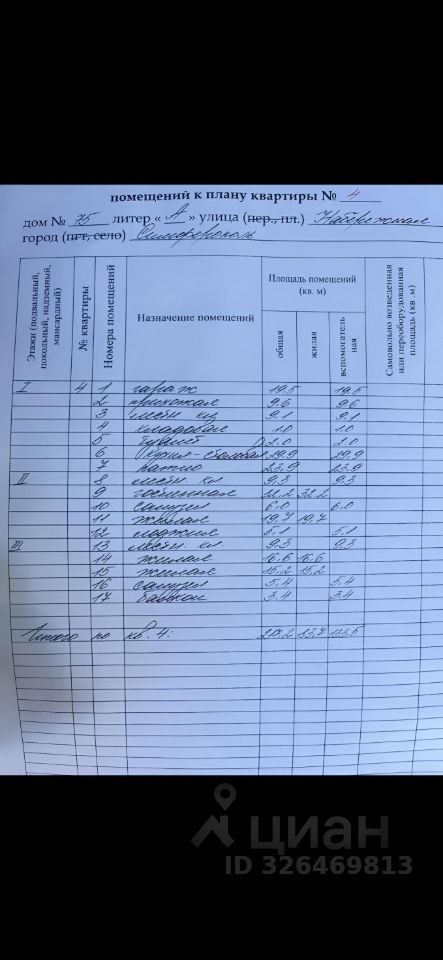 помещений к плану квартиры № 4
дом № 75 литер « А » улица (пер., пл.) Набережная
город (пгт, село) Симферополь
Этажи (подвальный, цокольный, надземный, мансардный) № квартиры Номера помещений Назначение помещений Площадь помещений (кв. м) Самовольно возведенная или переоборудованная площадь (кв .м)
общая жилая вспомогатель ная
I 4 1 гараж 19,5 19,5
2 прихожая 9,6 9,6
3 лестн. кл. 9,1 9,1
4 кладовая 1.0 1.0
5 туалет 2.0 2.0
6 кухня-столовая 29,9 29,9
7 патио 23,9 23,9
II 8 лестн. кл. 9,3 9,3
9 гостинная 32,2 32,2
10 санузел 6.0 6.0
11 жилая 19,7 19,7
12 лоджия 5,1 5,1
III 13 лестн. кл. 9,3 9,3
14 жилая 16,6 16,6
15 жилая 15,2 15,2
16 санузел 5,4 5,4
17 балкон 3.4 3.4
Итого по кв. 4: 217,2 133,5
циан
ID 326469813